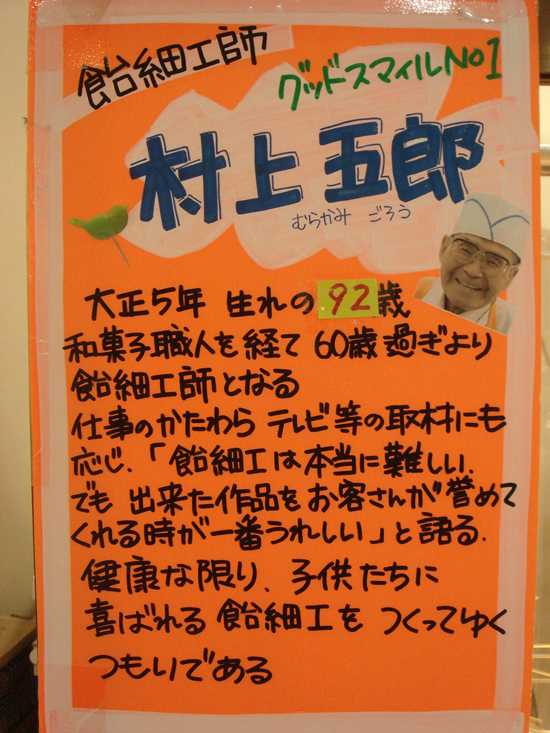 飴細工師
グッドスマイルNO1
村上五郎
むらかみ ごろう
大正5年 生れの 92歳
和菓子職人を経て 60歳過ぎより
飴細工師となる
仕事のかたわら テレビ等の取材にも
応じ、「飴細工は本当に難しい、
でも 出来た作品をお客さんが誉めて
くれる時が一番うれしい」と語る.
健康な限り、子供たちに
喜ばれる 飴細工を つくってゆく
つもりである